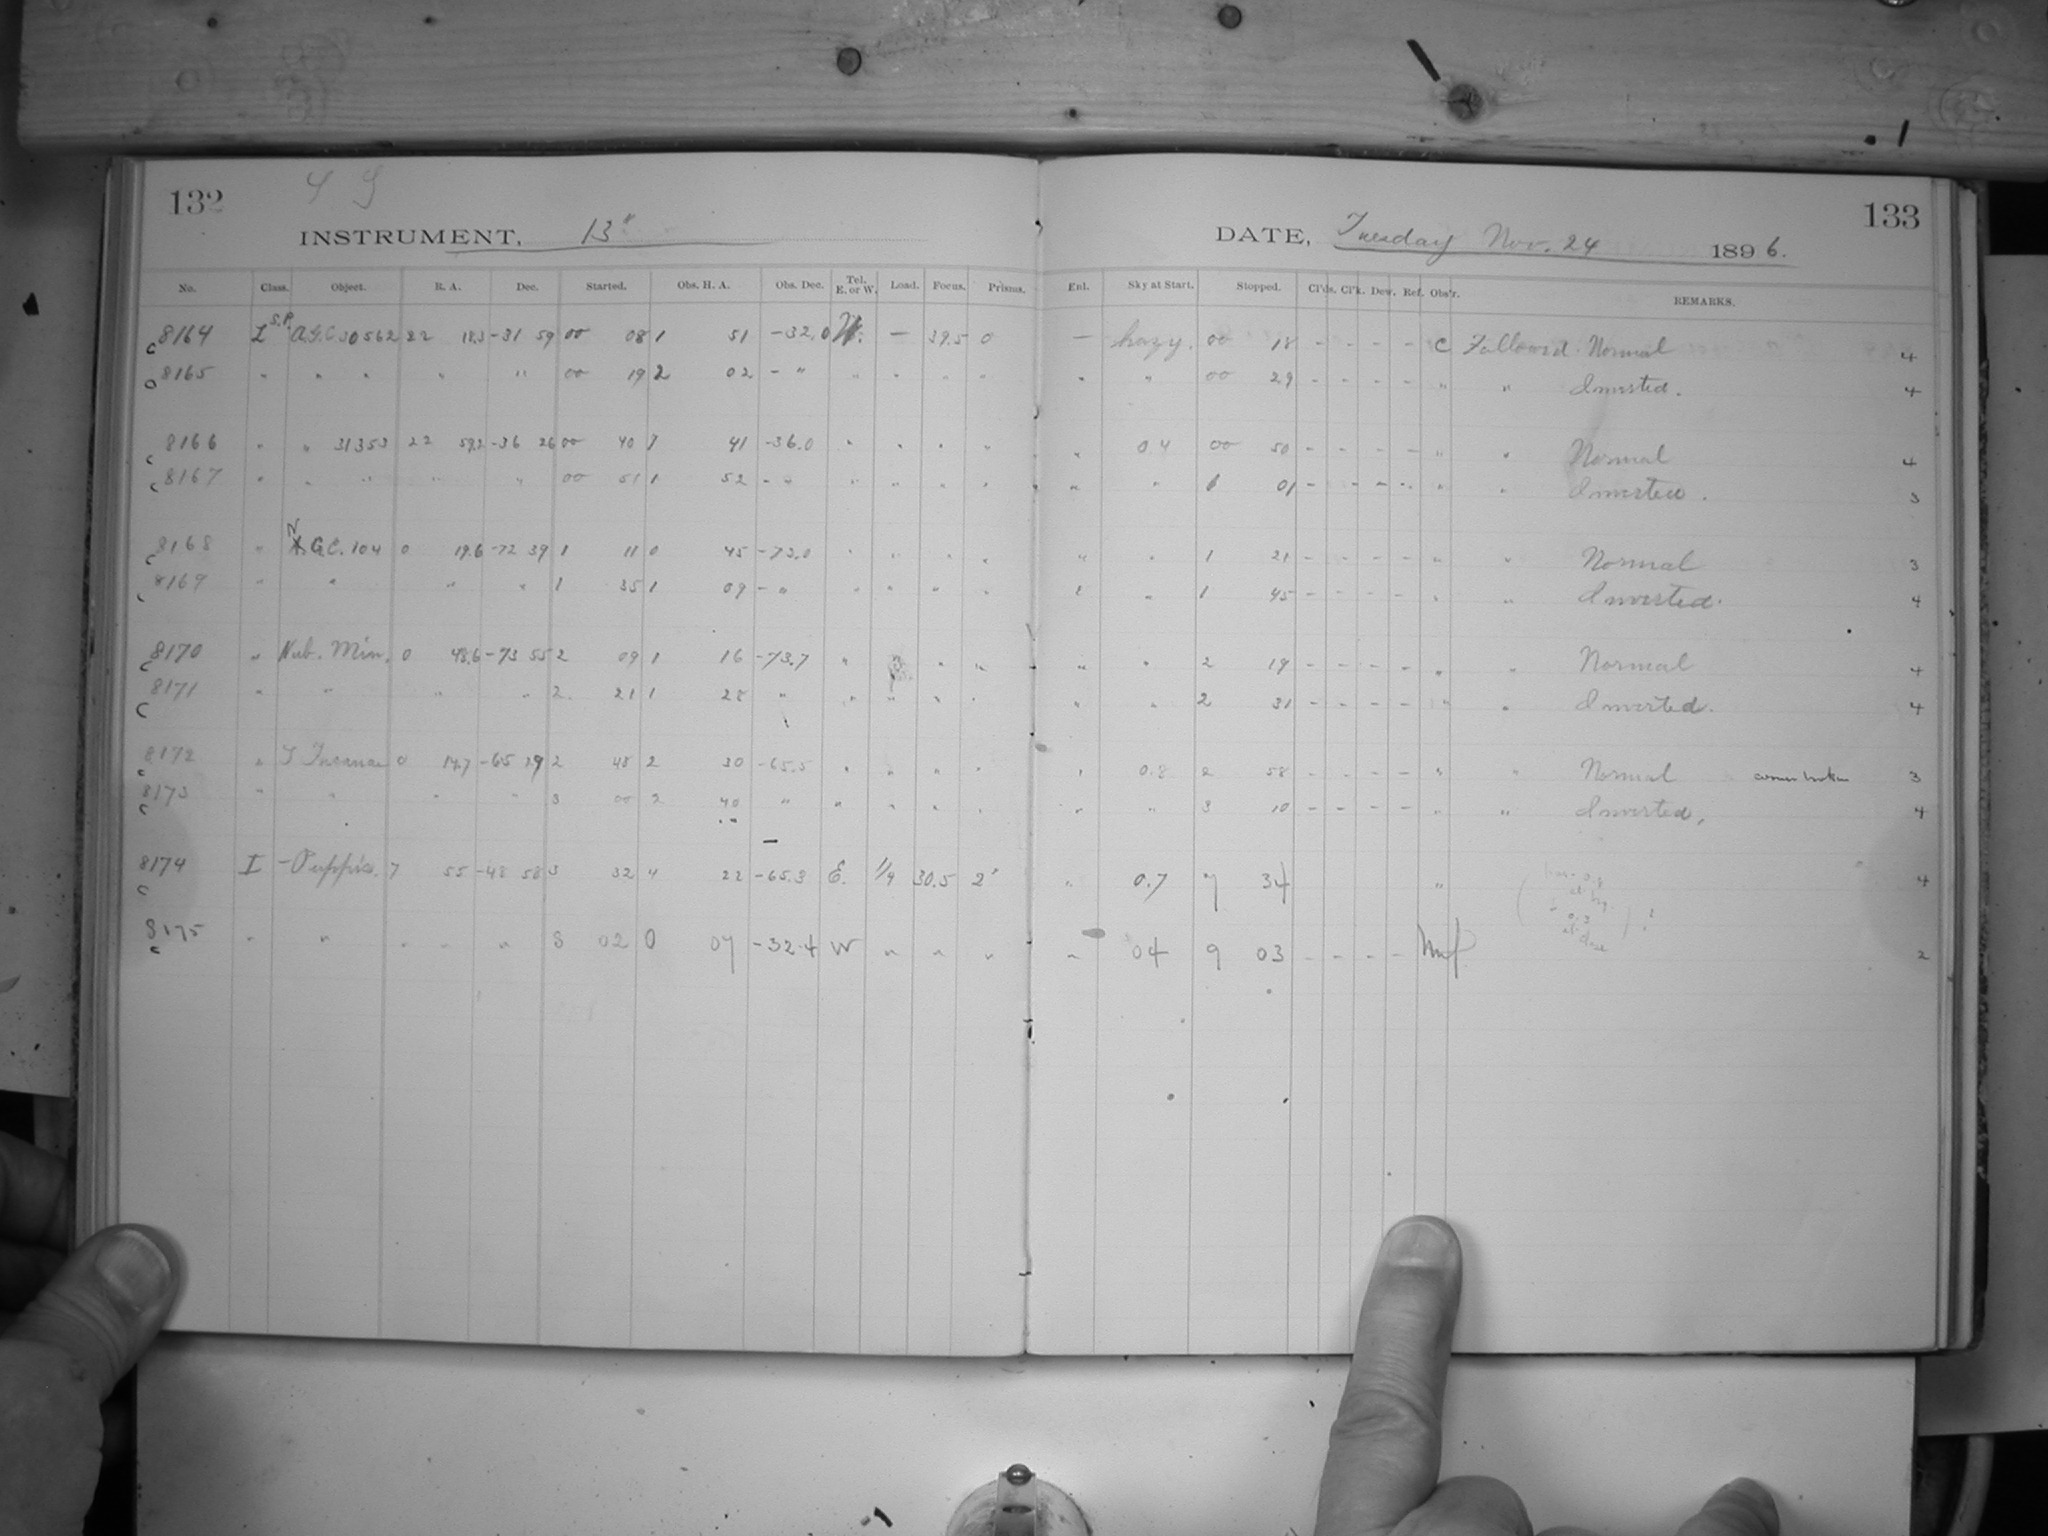 132
INSTRUMENT, 13"
DATE, Tuesday Nov. 24 1896.
133
No. Class. Object. R. A. Dec. Started. Obs. H. A. Obs. Dec. Tel. E. or W. Load. Focus. Prisms. Enl. Sky at Start. Stopped. Cl'ds. Cl'k. Dew. Ref. Obs'r. REMARKS.
8164 L S.P. A.G.C. 30562 22 18.3 -31 59 00 08 1 51 -32.0 W. — 39.5 0 — hazy. 00 18 - - - - C Followed. Normal 4
8165 " " " " " 00 19 2 02 - " " " " " " " 00 29 - - - - " " Inverted. 4
8166 " " 31353 22 59.2 -36 26 00 40 1 41 -36.0 " " " " " 0.4 00 50 - - - - " " Normal 4
8167 " " " " " 00 51 1 52 - " " " " " " " 1 01 - - - - " " Inverted. 3
8168 " N.G.C. 104 0 19.6 -72 39 1 11 0 45 -73.0 " " " " " " 1 21 - - - - " " Normal 3
8169 " " " " 1 35 1 09 - " " " " " " " 1 45 - - - - " " Inverted. 4
8170 " Nub. Min. 0 48.6 -73 55 2 09 1 16 -73.7 " " " " " 2 19 - - - - " " Normal 4
8171 " " " " 2 21 1 28 " " " " " " " 2 31 - - - - " " Inverted. 4
8172 " T Tucanae 0 14.7 -65 29 2 48 2 30 -65.5 " " " " " 0.8 2 58 - - - - " " Normal corner broken 3
8173 " " " " 3 00 2 40 " " " " " " " 3 10 - - - - " " Inverted. 4
8174 I - Puppis. 7 55 -48 58 3 32 4 22 -65.3 E. 1/4 30.5 2" " 0.7 7 34 " 4
8175 " " " " " 8 02 0 07 -32.4 W " " " " 04 9 03 - - - - 2